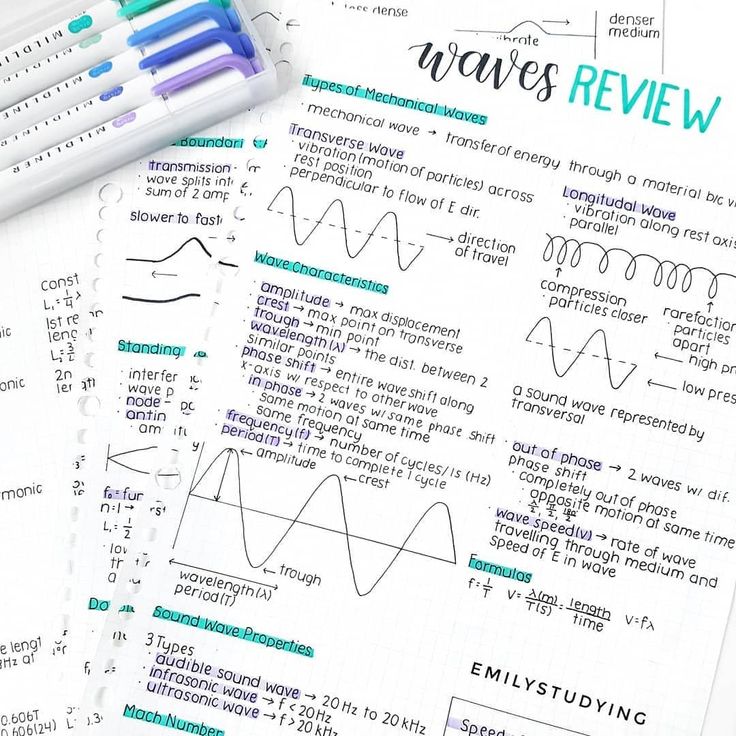 MILDLINER
MILDLINER
MILDLINER
MILDLINER
less dense
vibrate
denser
medium
waves REVIEW
Types of Mechanical Waves
· mechanical wave → transfer of energy through a material b/c
Transverse wave
· vibration (motion of particles) across
rest position
· perpendicular to flow of E dir.
→ direction
of travel
Longitudal Wave
· vibration along rest axis
· parallel
compression
· particles closer
rarefaction
· particles
apart
← high
← low
a sound wave represented by
transversal
Wave Characteristics
· amplitude → max displacement
· crest → max point on transverse
· trough → min point
· wavelength (λ) → the dist. between 2
similar points
· phase shift → entire wave shift along
x-axis w/ respect to other wave
· in phase → 2 waves w/ same phase shift
· same motion at same time
· same frequency
· frequency (f) → number of cycles/1s (Hz)
· period (T) → time to complete 1 cycle
· out of phase → 2 waves w/ dif.
phase shift
· completely out of phase
· opposite motion at same time
· wave speed (v) → rate of wave
travelling through medium and
speed of E in wave
amplitude
crest
trough
wavelength (λ)
period (T)
Formulas
f = 1/T v = λ(m)/T(s) = length/time v = fλ
Sound Wave Properties
3 Types
· audible sound wave → 20 Hz to 20 kHz
· infrasonic wave → f < 20 Hz
· ultrasonic wave → f > 20 kHz
Mach Number
EMILYSTUDYING
Speed
transmission
· wave splits
· sum of 2
slower to
Standing
· wave
· node
f₀ =
n=1 →
L₁ = 1/2
L₁ = 1/4 λ
1st
L₂ = 3/2
2n
0.606T
0.606(24)